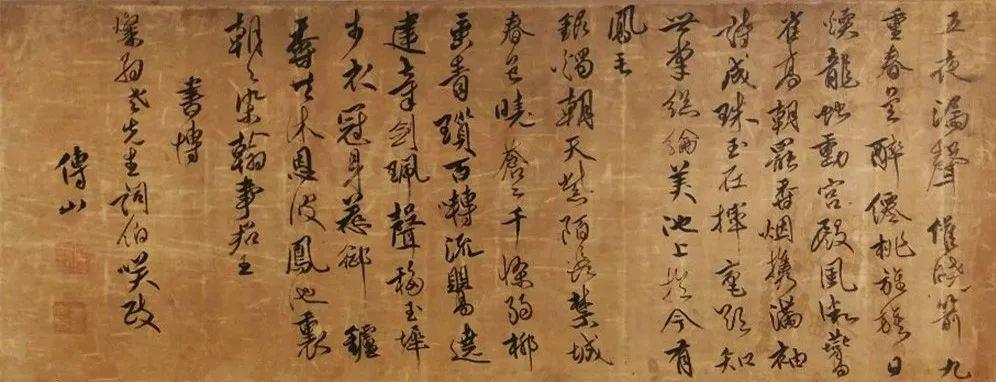 五夜漏聲催曉箭九
重春色醉僊桃旌旂日
煖龍蛇動宮殿風微鷰
雀高朝罷香烟攜滿袖
詩成珠玉在揮毫欲知
世掌絲綸美池上於今有
鳳毛
銀燭朝天紫陌禁城
春色曉蒼〻千條弱柳
垂青瑣百囀流鶯遶
建章劍珮聲移玉墀
步衣冠身惹御爐
香共沐恩波鳳池裏
朝〻染翰事君王
書博
老先生詞伯笑政
傅山